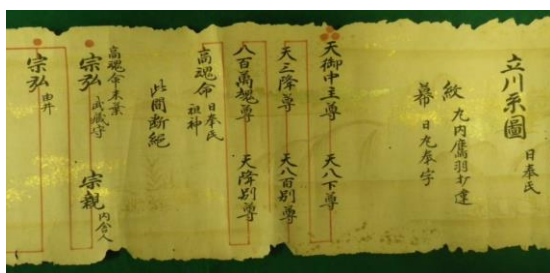 立川系圖 日奉氏
紋 丸内鷹羽打違
幕 日丸奉字
天御中主尊 天八下尊
天三降尊 天八百別尊
八百萬魂尊 天降別尊
高魂命 日奉氏祖神
此間断絶
高魂命末葉
宗弘 武藏守 宗親 内舎人
宗弘 由井